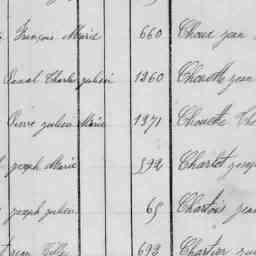 François Marie 660 Choux jean
Pascal Charles julien 1260 Chouette jean
Pierre julien Marie 1271 Chouette
joseph Marie 592 Charlot joseph
joseph julien 65 Chartois jean
692 Chartier